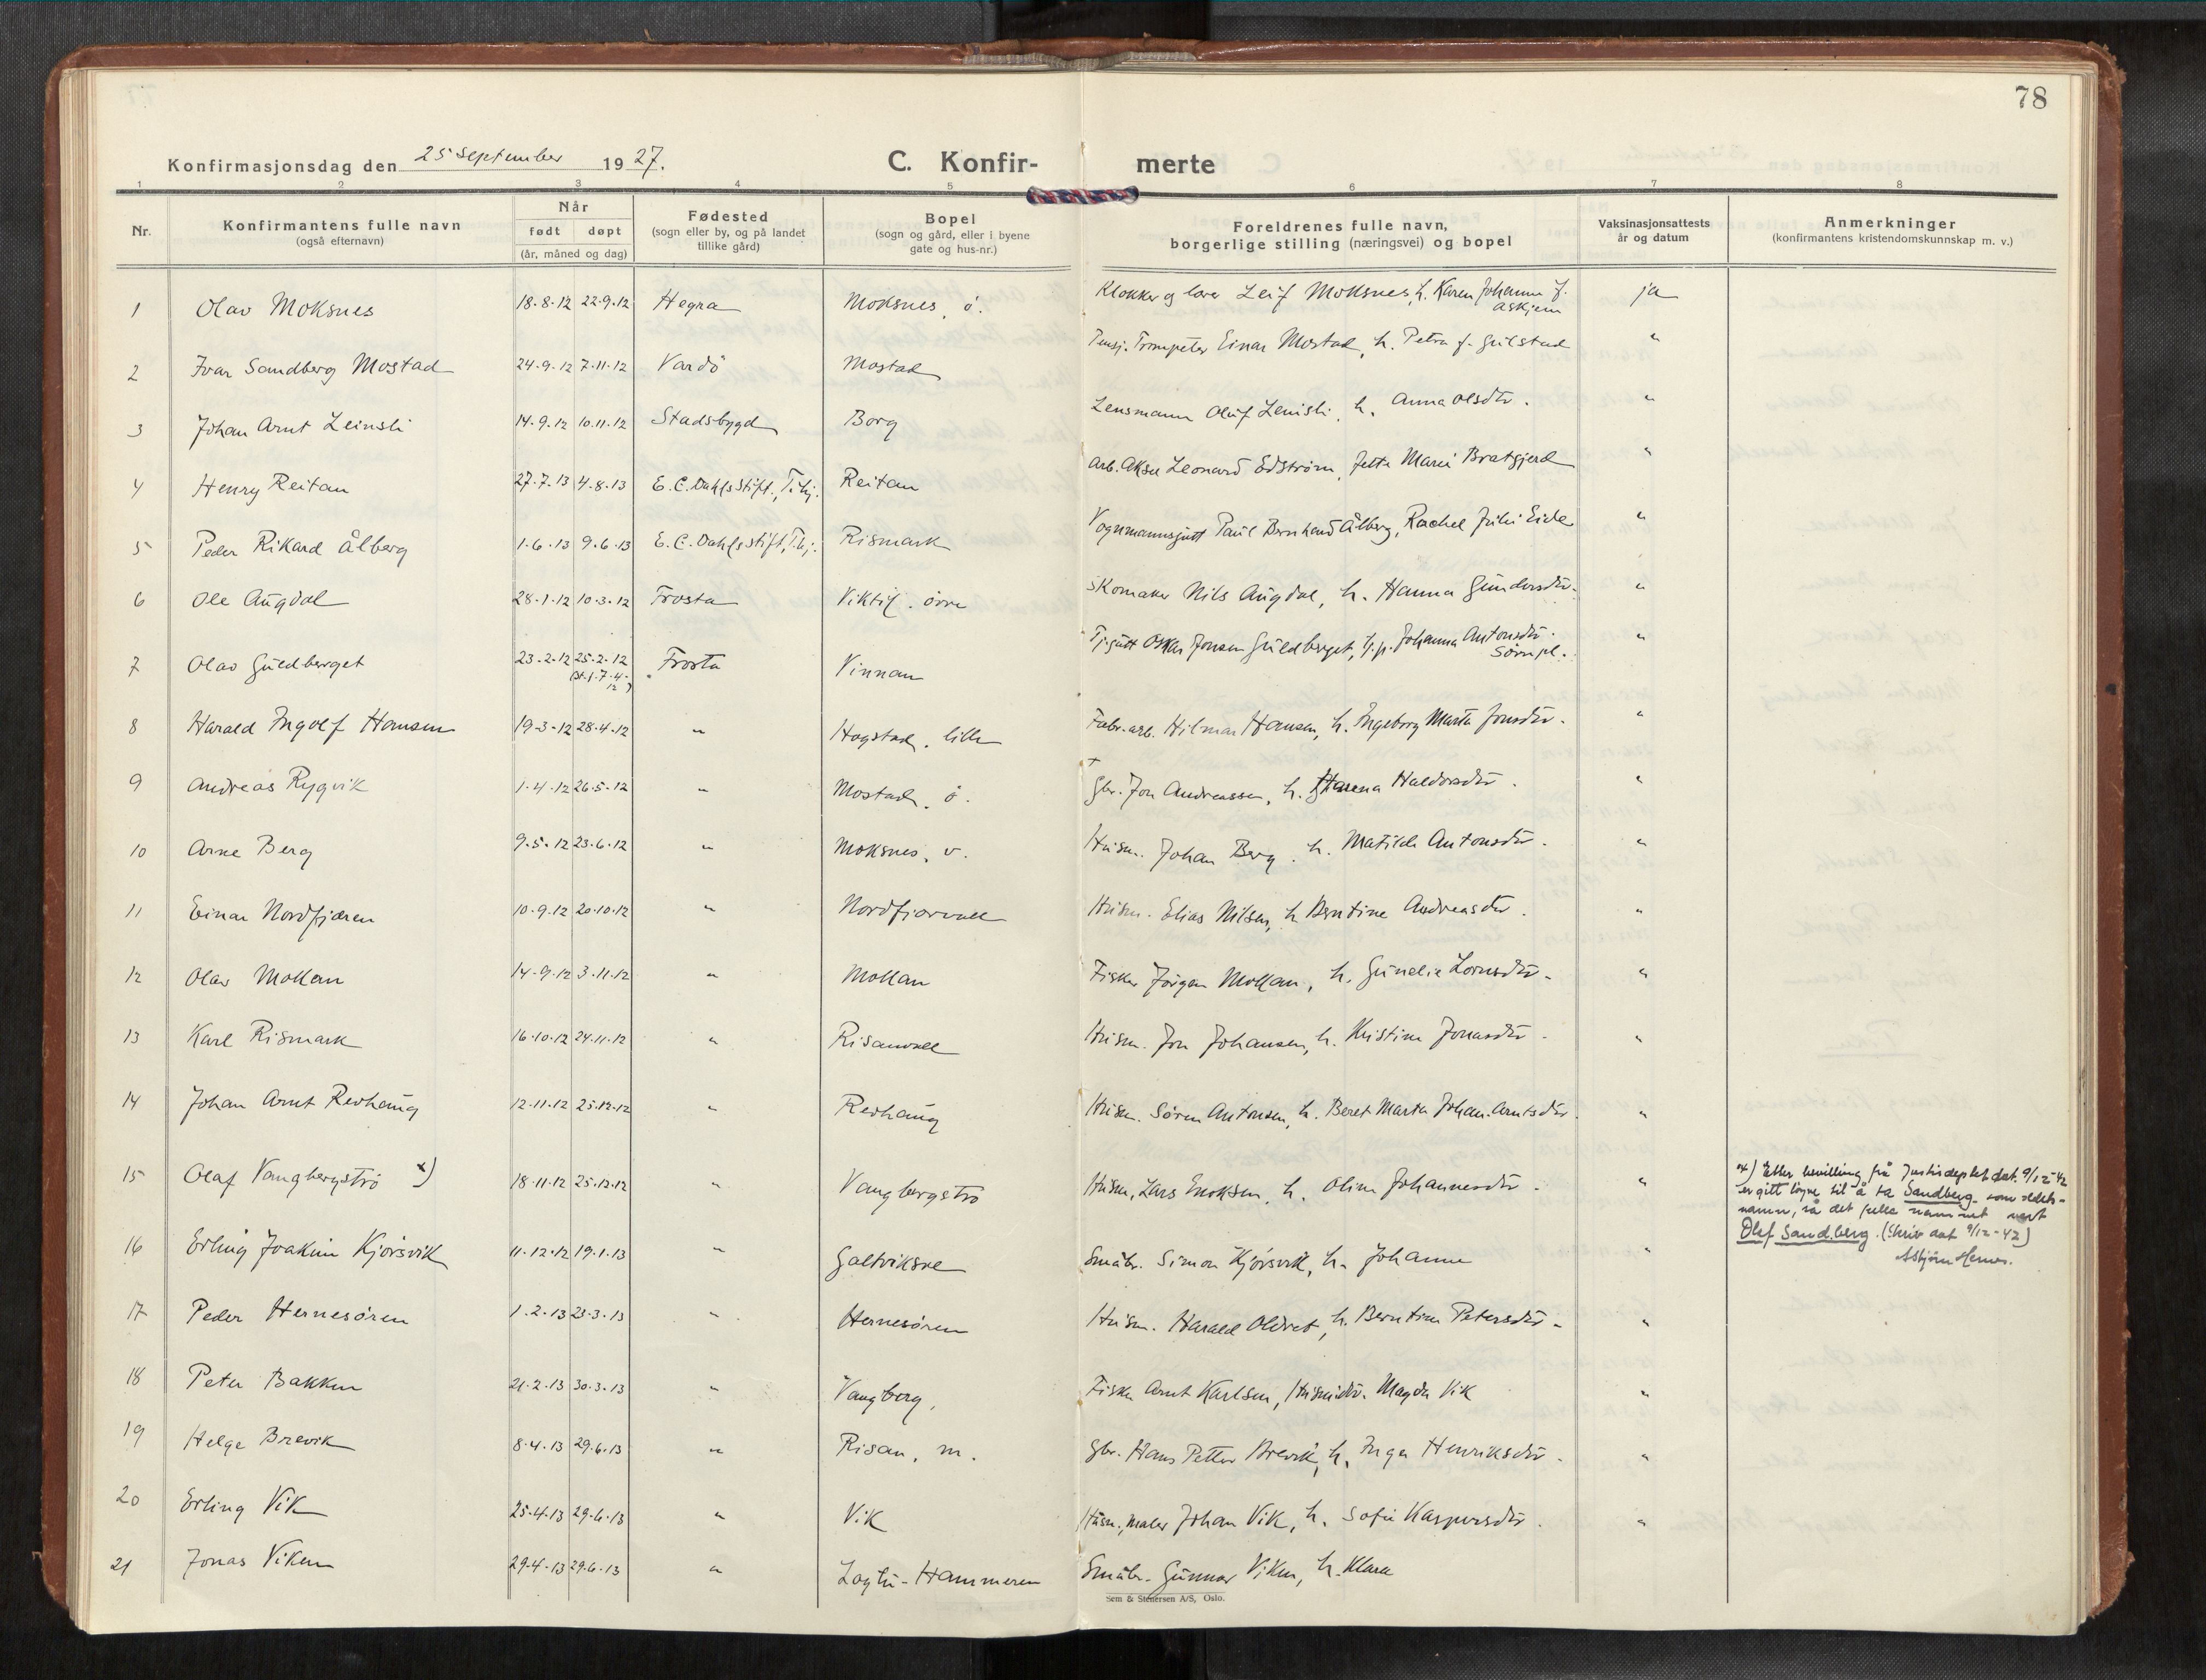 78
Konfirmasjonsdag den 25 September 1927.
C. Konfir- merte
1 2 3 4 5 6 7 8
Nr. Konfirmantens fulle navn (også efternavn) Når født døpt (år, måned og dag) Fødested (sogn eller by, og på landet tillike gård) Bopel (sogn og gård, eller i byene gate og hus-nr.) Foreldrenes fulle navn, borgerlige stilling (næringsvei) og bopel Vaksinasjonsattests år og datum Anmerkninger (konfirmantens kristendomskunnskap m. v.)
1 Olav Moksnes 18.8.12 22.9.12 Hegra Moksnes, ö. Klokker og lærer Leif Moksnes, h. Karen Johanne f. Askjem ja
2 Ivar Sandberg Mostad 24.9.12 7.11.12 Vardö Mostad Pensj. Trompeter Einar Mostad, h. Petra f. Gulstad "
3 Johan Arnt Leinsli 14.9.12 10.11.12 Stadsbygd Borg Lensmann Oluf Leinsli, h. Anna Olsdtr. "
4 Henry Reitan 27.7.13 4.8.13 E.C. Dahls Stift., T.hj. Reitan Arb. Aksel Leonard Edström, Jette Marie Bratgjerd "
5 Peder Rikard Ålberg 1.6.13 9.6.13 E.C. Dahls Stift, T.hj. Rismark Vognmannsgutt Paul Bernhard Ålberg, Rachel Julie Eide "
6 Ole Augdal 28.1.12 10.3.12 Frosta Viktil. övre Skomaker Nils Augdal, h. Hanna Gundersdtr. "
7 Olav Guldberget 23.2.12 25.2.12 (st. i 7.4.12) Frosta Vinnan Tj.gutt Oskar Jonsen Guldberget, t.p. Johanna Antonsdtr. Sörnpl. "
8 Harald Ingolf Hansen 19.3.12 28.4.12 " Hogstad. lille Fabr.arb. Hilmar Hansen, h. Ingeborg Marta Jonsdtr. "
9 Andreas Rygvik 1.4.12 26.5.12 " Mostad. ö. Gbr. Jon Andreassen, h. Hanna Haldorsdtr. "
10 Arne Berg 9.5.12 23.6.12 " Moksnes, v. Husm. Johan Berg. h. Matilde Antonsdtr. "
11 Einar Nordfjæren 10.9.12 20.10.12 " Nordfjorvald Husm. Elias Nilsen, h. Berntine Andreasdtr. "
12 Olav Mollan 14.9.12 3.11.12 " Mollan Fisker Jörgen Mollan, h. Gunelie Lornsdtr. "
13 Karl Rismark 16.10.12 24.11.12 " Risanvald Husm. Jon Johansen, h. Kristine Jonasdtr. "
14 Johan Arnt Revhaug 12.11.12 25.12.12 " Revhaug Husm. Sören Antonsen, h. Beret Marta Johan-Arntsdtr. "
15 Olaf Vangbergstrø x) 18.11.12 25.12.12 " Vangbergstrø Husm. Lars Enoksen, h. Oline Johannesdtr. " x) Etter bevilling frå Justisdeptet dat. 9/12-42
er gitt löyve til å ta Sandberg som slekts-
namn, så det fulle namnet vert
Olaf Sandberg. (Skriv dat 9/12-42)
Asbjörn Hernes.
16 Erling Joakim Kjörsvik 11.12.12 19.1.13 " Galtviksve Småbr. Simon Kjörsvik, h. Johanne "
17 Peder Hernesören 1.2.13 23.3.13 " Hernesören Husm. Harald Oldret, h. Berntine Petersdtr. "
18 Peter Bakken 21.2.13 30.3.13 " Vangberg, Fisker Arnt Karlsen, Husmdtr. Magda Vik "
19 Helge Brevik 8.4.13 29.6.13 " Risan, m. Gbr. Hans Petter Brevik, h. Inga Henriksdtr. "
20 Erling Vik 25.4.13 29.6.13 " Vik Husm., maler Johan Vik, h. Sofie Kaspersdtr. "
21 Jonas Viken 29.4.13 29.6.13 " Logtu-Hammeren Småbr. Gunnar Viken, h. Klara
Sem & Stenersen A/S, Oslo.